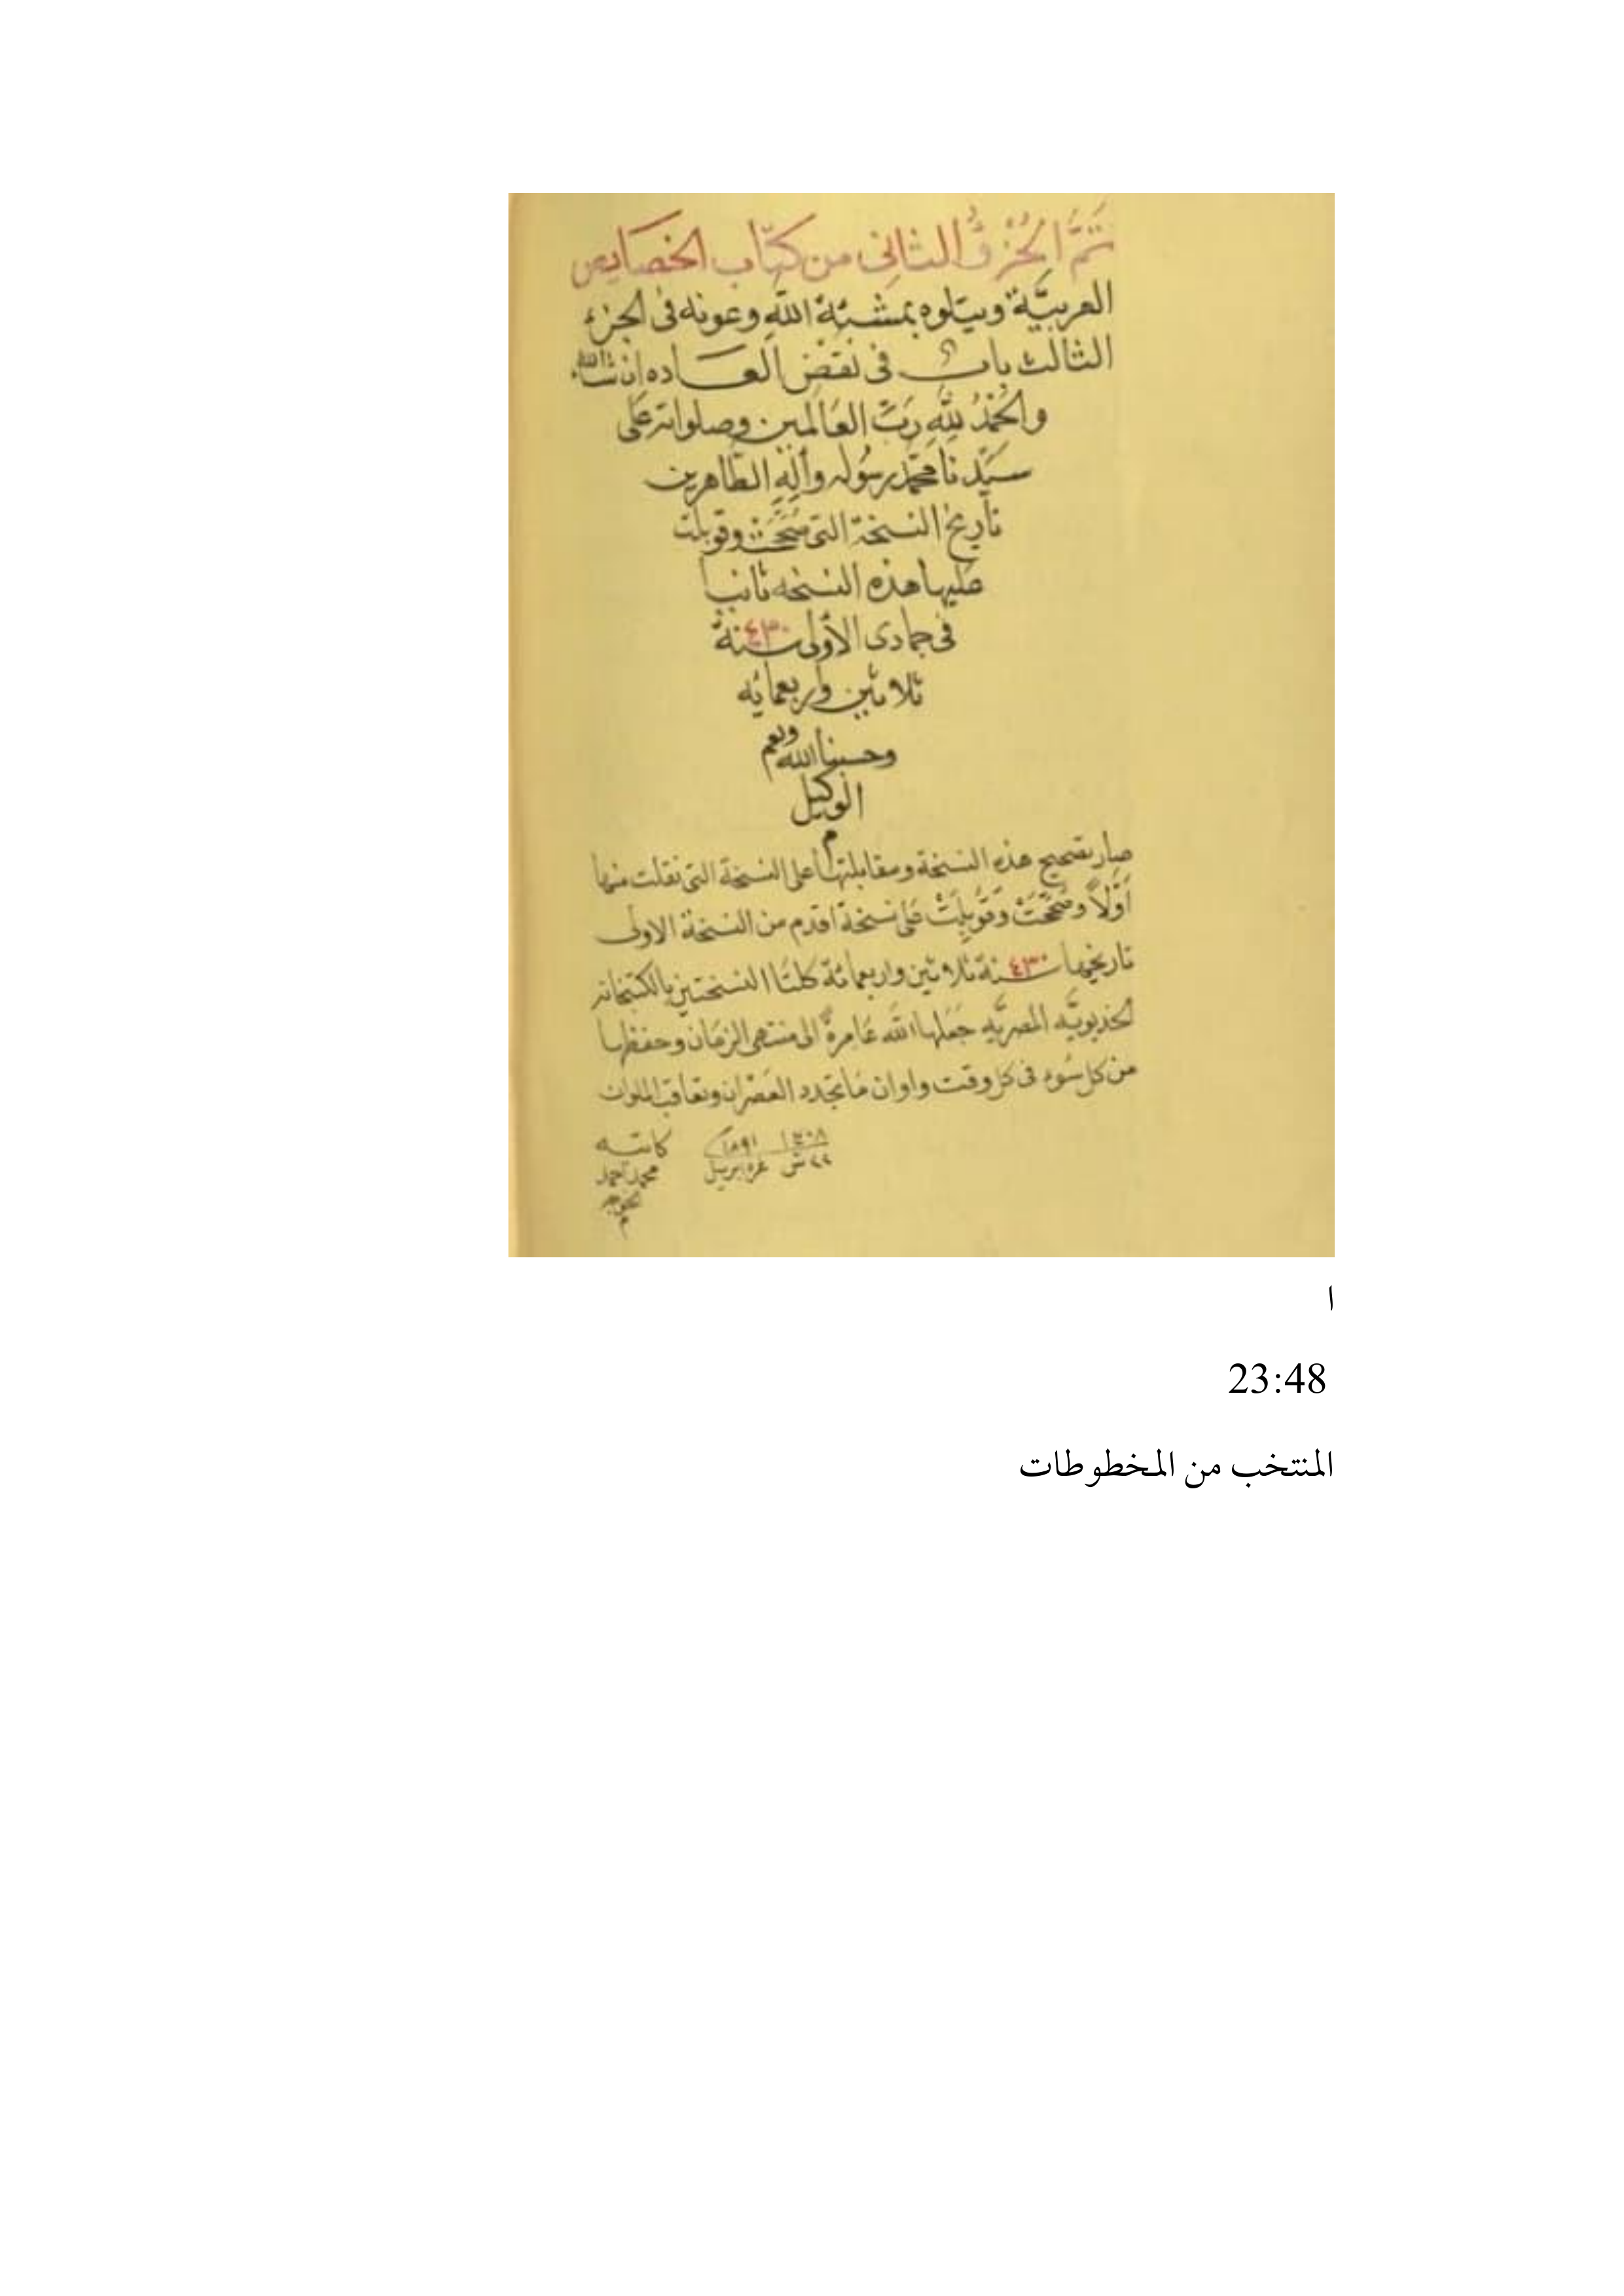 تَمَّ الجُزْءُ الثانِى من كتاب الخصايص
العربيَّة ويتلوه بمشيئة الله وعونه فى الجزء
الثالث باب فى نقض العاده ان شاء الله
والحَمْدُ للهِ رَبّ العَالمين وصلواته عَلى
سيّدنا محمّد رسُوله وآلهِ الطاهرين
تاريخ النسخة التى صُحّحَتْ وقوبلت
عليها هذه النسخه ثانيا
فى جمادى الأولى سنة ٤٣٠
ثلاثين واربعمائه
وحسبنا الله ونعم
الوكيل
م
صار تصحيح هذه النسخة ومقابلتها على النسخة التى نقلت منها
أوّلاً وصُحّحَتْ وقُوبِلَتْ عَلى نسخة اقدم من النسخة الاولى
تاريخها سنة ٤٣٠ ثلاثين واربعمائة كلتا النسختين بالكتبخانه
الخديويّه المصريّه جَعَلها الله عَامرةً الى منتهى الزمَان وحفظها
من كل سُوء فى كل وقت واوان مَا تجَدد العَصْران وتعَاقب الملوان
كاتبه ١٨٩١ ١٣٠٨
محمد احمد غره ابريل ٢٢ ش
م
ا
23:48
المنتخب من المخطوطات